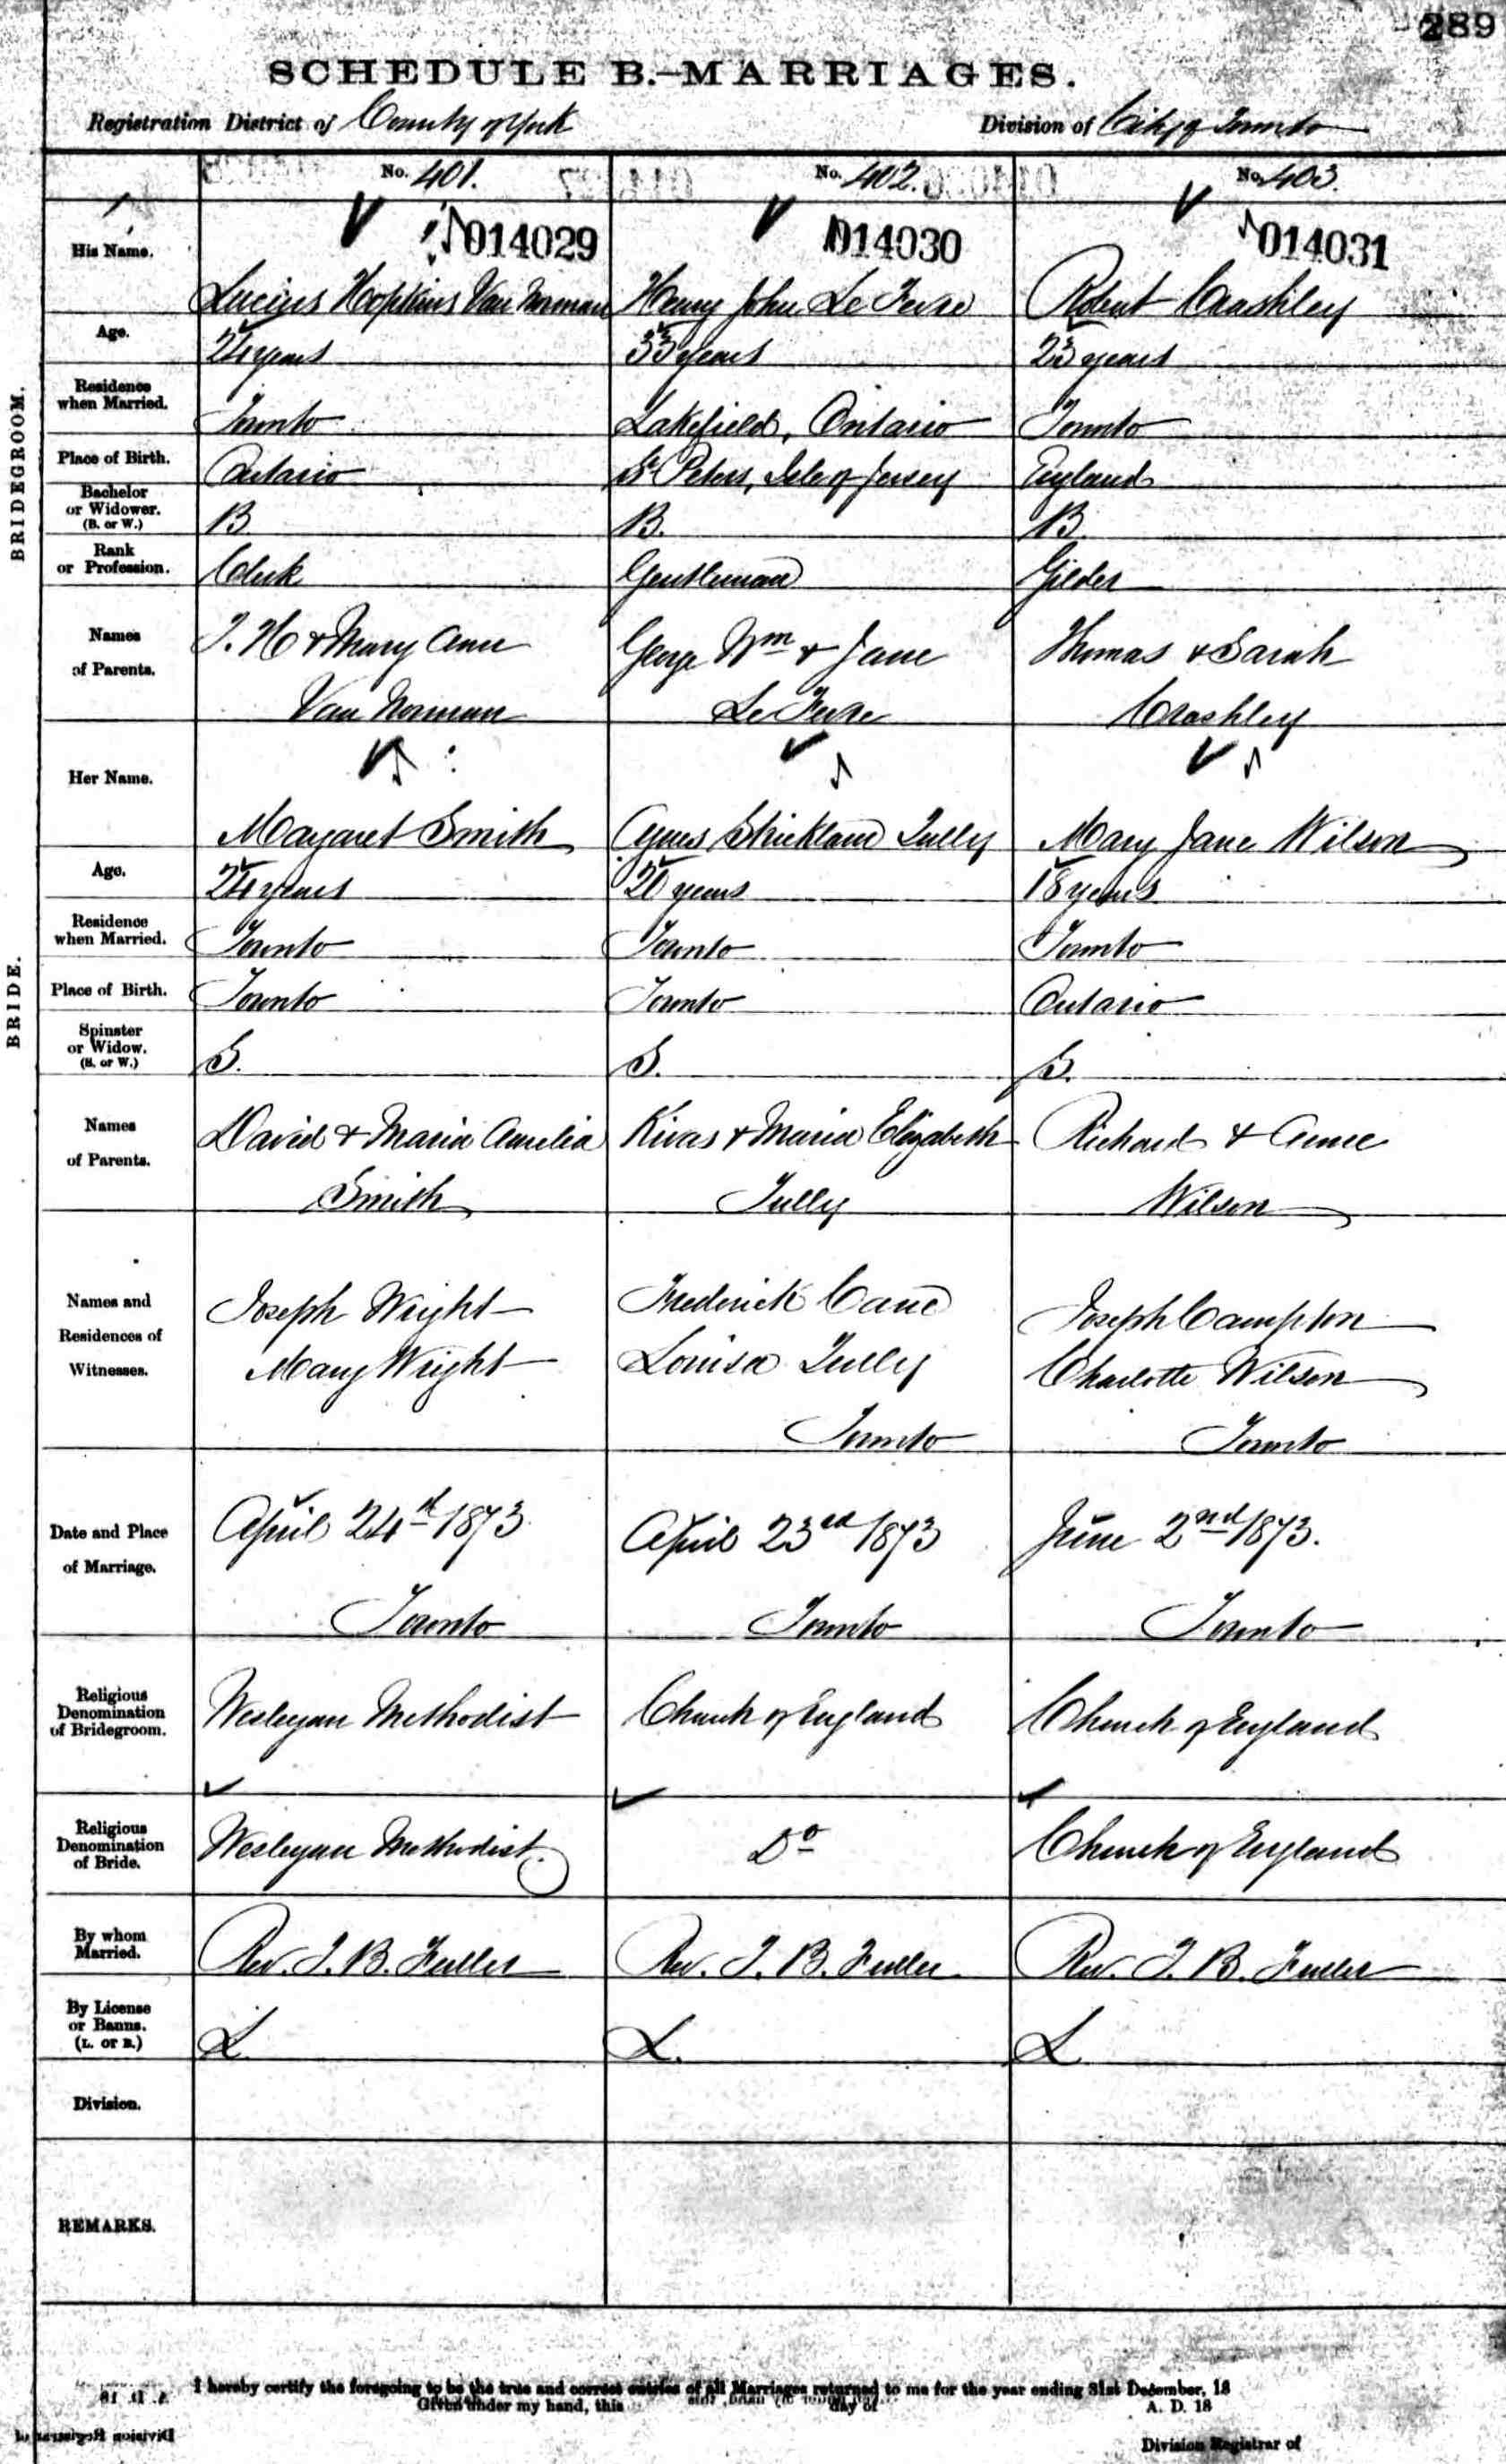 289
SCHEDULE B.—MARRIAGES.
Registration District of County of York Division of City of Toronto
No. 401. No. 402. No. 403.
014029 014030 014031
His Name. Lucius Hopkins Van Norman Henry John Le Fevre Robert Crashley
Age. 24 years 33 years 23 years
Residence
when Married. Toronto Lakefield, Ontario Toronto
Place of Birth. Ontario St. Peters, Isle of Jersey England
Bachelor
or Widower.
(B. or W.) B B. B
Rank
or Profession. Clerk Gentleman Gilder
Names
of Parents.
J. H & Mary Ann George Wm & Jane Thomas & Sarah
Van Norman Le Fevre Crashley
BRIDEGROOM.
Her Name. Margaret Smith Agnes Strickland Tully Mary Jane Wilson
Age. 24 years 20 years 18 years
Residence
when Married. Toronto Toronto Toronto
Place of Birth. Toronto Toronto Ontario
Spinster
or Widow.
(S. or W.) S. S. S.
Names
of Parents.
David & Maria Amelia Kivas & Maria Elizabeth Richard & Anne
Smith Tully Wilson
BRIDE.
Names and
Residences of
Witnesses.
Joseph Wright Frederick Cane Joseph Campton
Mary Wright Louisa Tully Charlotte Wilson
Toronto Toronto
Date and Place
of Marriage.
April 24th 1873 April 23rd 1873 June 2nd 1873.
Toronto Toronto Toronto
Religious
Denomination
of Bridegroom. Wesleyan Methodist Church of England Church of England
Religious
Denomination
of Bride. Wesleyan Methodist. Do Church of England
By whom
Married. Rev. J. B. Fuller Rev. J. B. Fuller Rev. J. B. Fuller
By License
or Banns.
(L. or B.) L L. L
Division.
REMARKS.
I hereby certify the foregoing to be the true and correct entries of all Marriages returned to me for the year ending 31st December, 18
Given under my hand, this day of A. D. 18
Division Registrar of